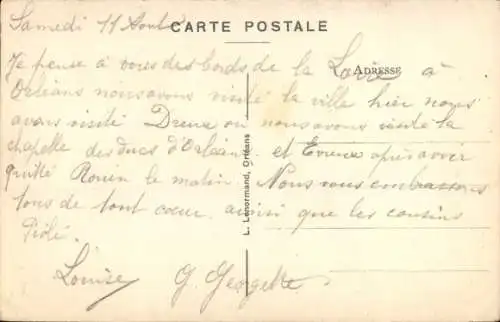 Samedi 11 Août
CARTE POSTALE
Je pense à vous des bords de la Loire à
ADRESSE
Orléans nous avons visité la ville hier nous
avons visité Dreux ou nous avons visité la
chapelle des ducs d'Orléans et Evreux après avoir
quitté Rouen le matin. Nous vous embrassons
tous de tout coeur ainsi que les cousins
Louise G. Georgette
L. Lenormand, Orléans